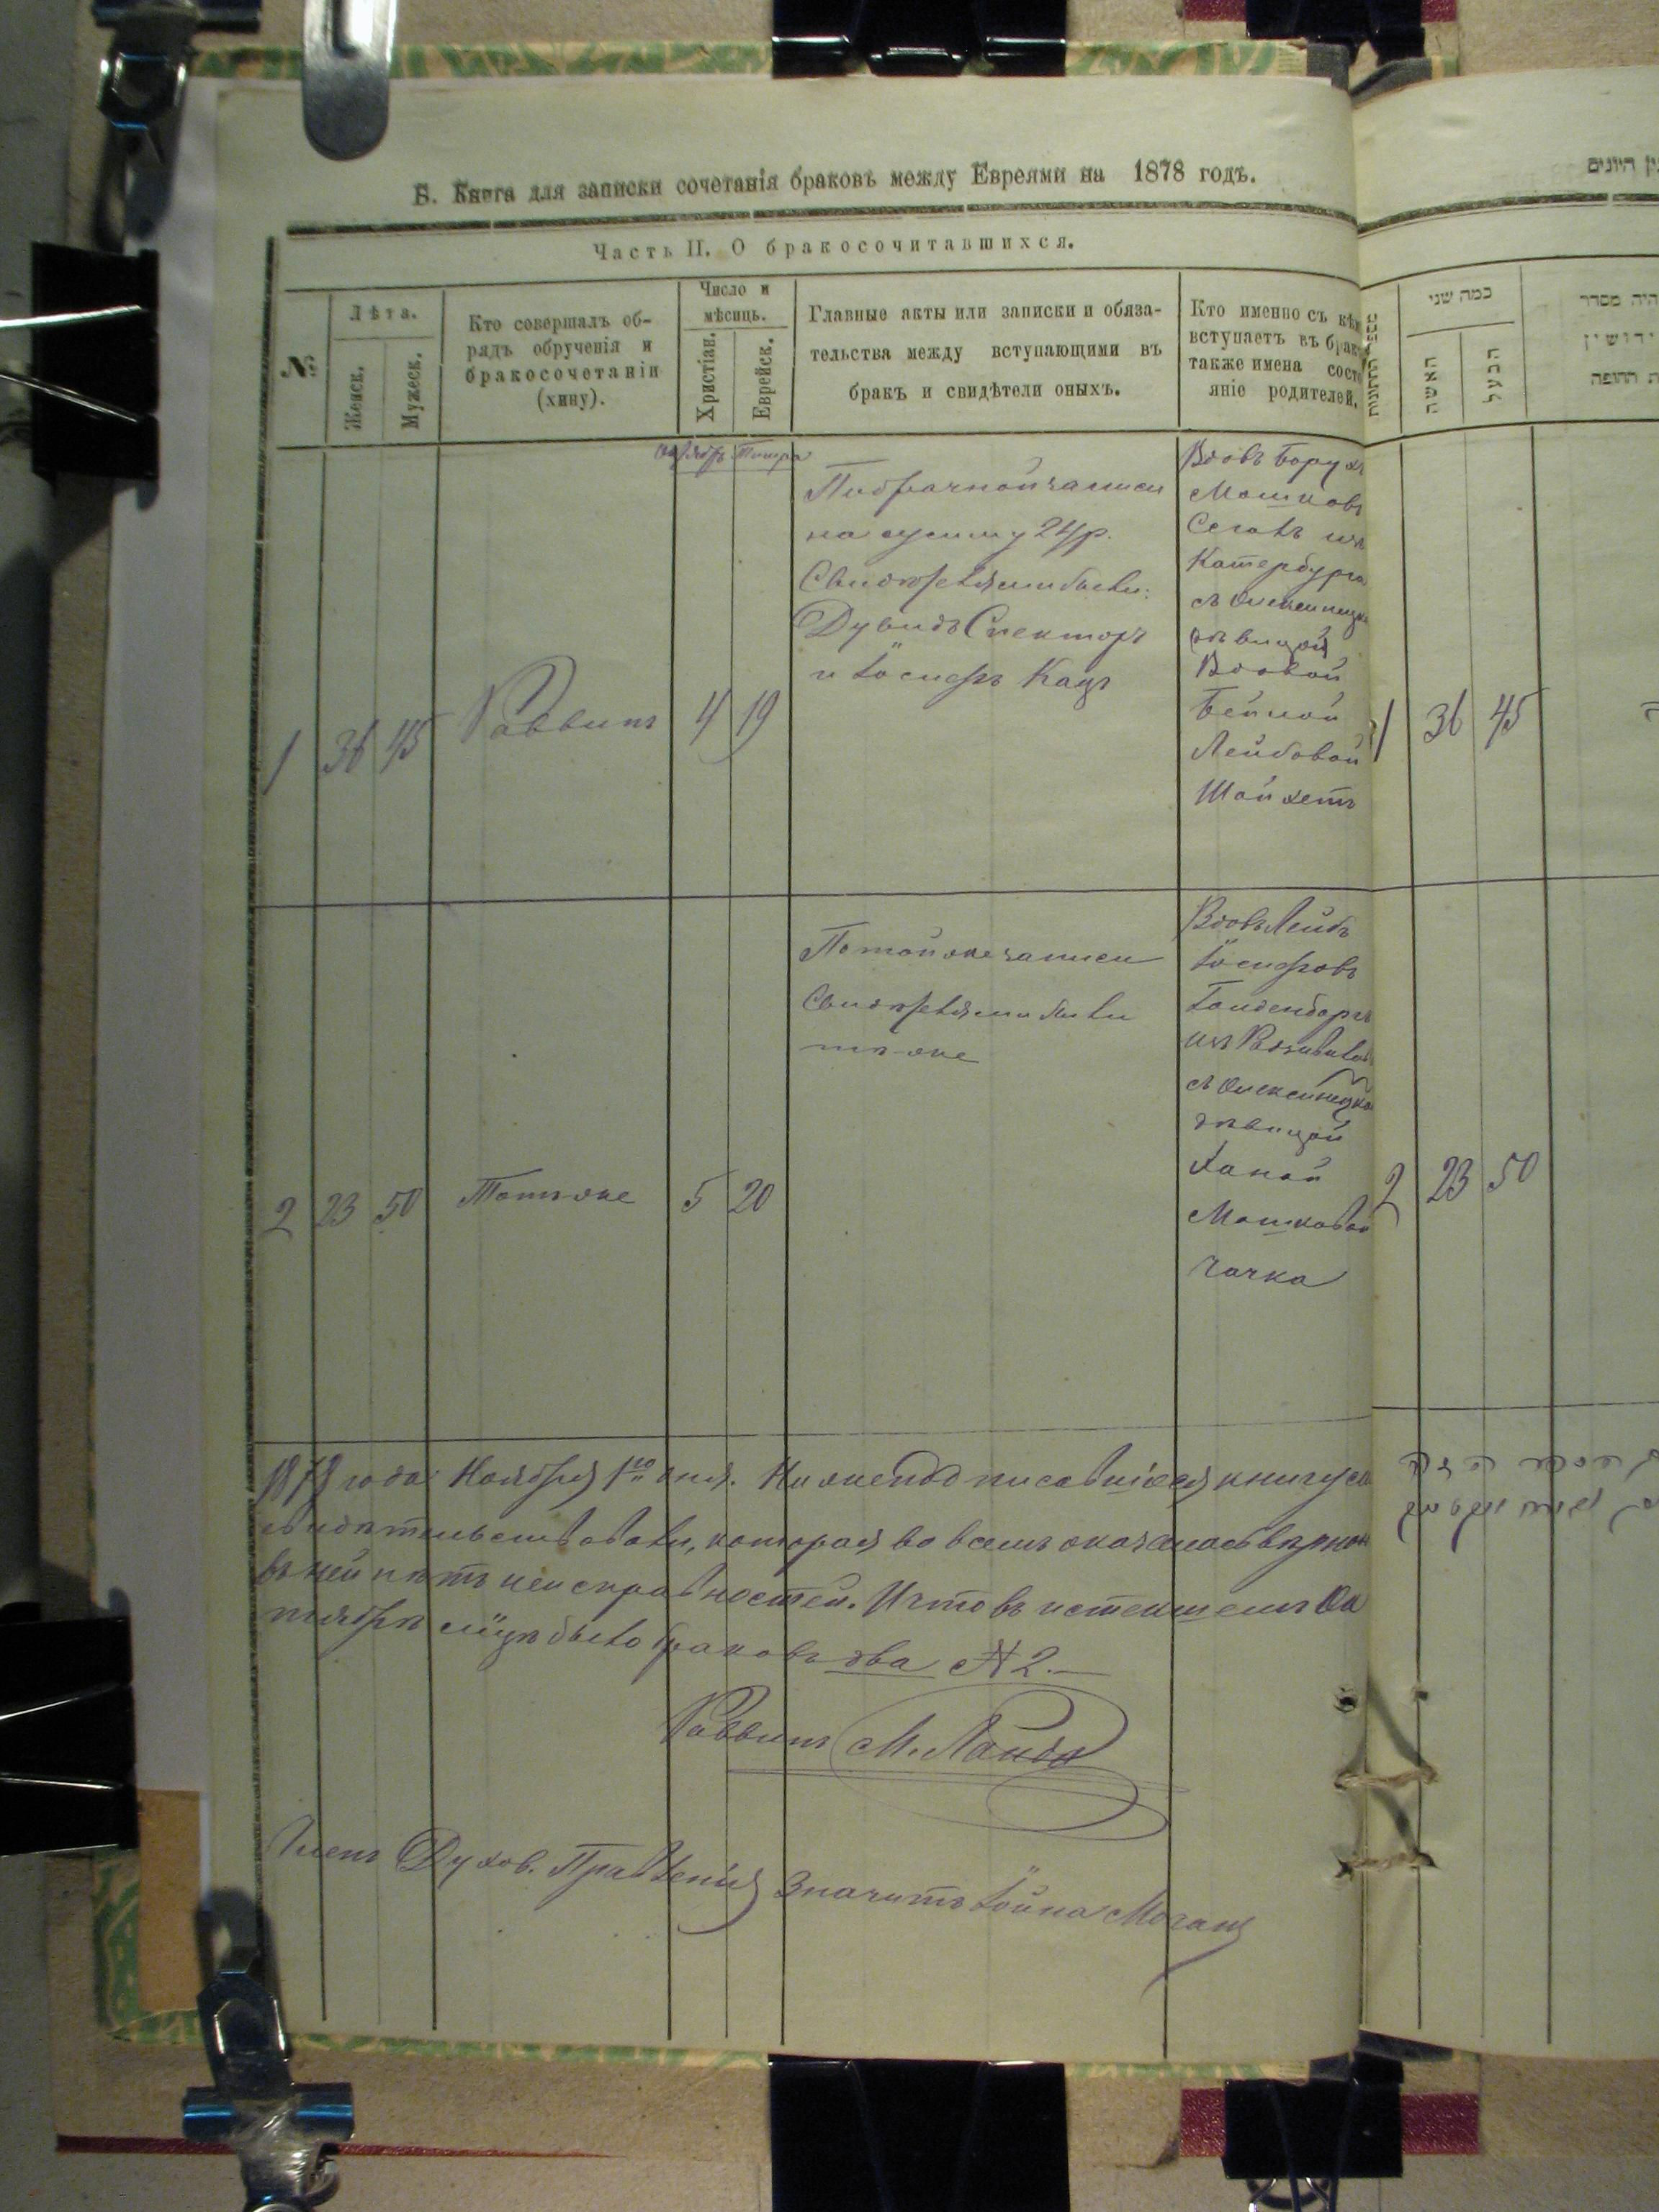 Б. Книга для записки сочетанія браковъ между Евреями на 1878 годъ.
Часть II. О бракосочитавшихся.
№
Лѣта.
Женск.
Мужеск.
Кто совершалъ об-
рядъ обрученія и
бракосочетанія
(хипу).
Число и
мѣсяцъ.
Христіан.
Еврейск.
Главные акты или записки и обяза-
тельства между вступающими въ
бракъ и свидѣтели оныхъ.
Кто именно съ кѣм
вступаетъ въ брак
также имена состо
яніе родителей.
1
36
45
Раввинъ
4
19
По брачной записи
на сумму 24 р.
Свидѣтелями были:
Дувидъ Спекторъ
и Іосифъ Кацъ
Вдовъ Борухъ
Мошковъ
Сегалъ изъ
Катербурга
съ Олексинецк
Вдовой
Бейлой
Лейбовой
Шойхетъ
2
23
50
Тотъ же
5
20
По той же записи
Свидѣтелями были
тѣ-же
Вдовъ Лейбъ
Іосифовъ
Гольденбергъ
съ Олексинецко
дѣвицой
Ханой
Мошковой
Чачка
1878 года Ноября 1го дня. Ниже подписавшіеся книгу сію
свидѣтельствовали, которая во всемъ оказалась вѣрною
въ ней нѣтъ неисправностей. И что въ истекшемъ Ок
тябрѣ м-цѣ было браковъ два № 2.
Раввинъ М. Ландо
Членъ Духов. Правленія значитъ Іойна
כמה שני
האשה
הבעל
היה מסדר
1
36
45
2
23
50